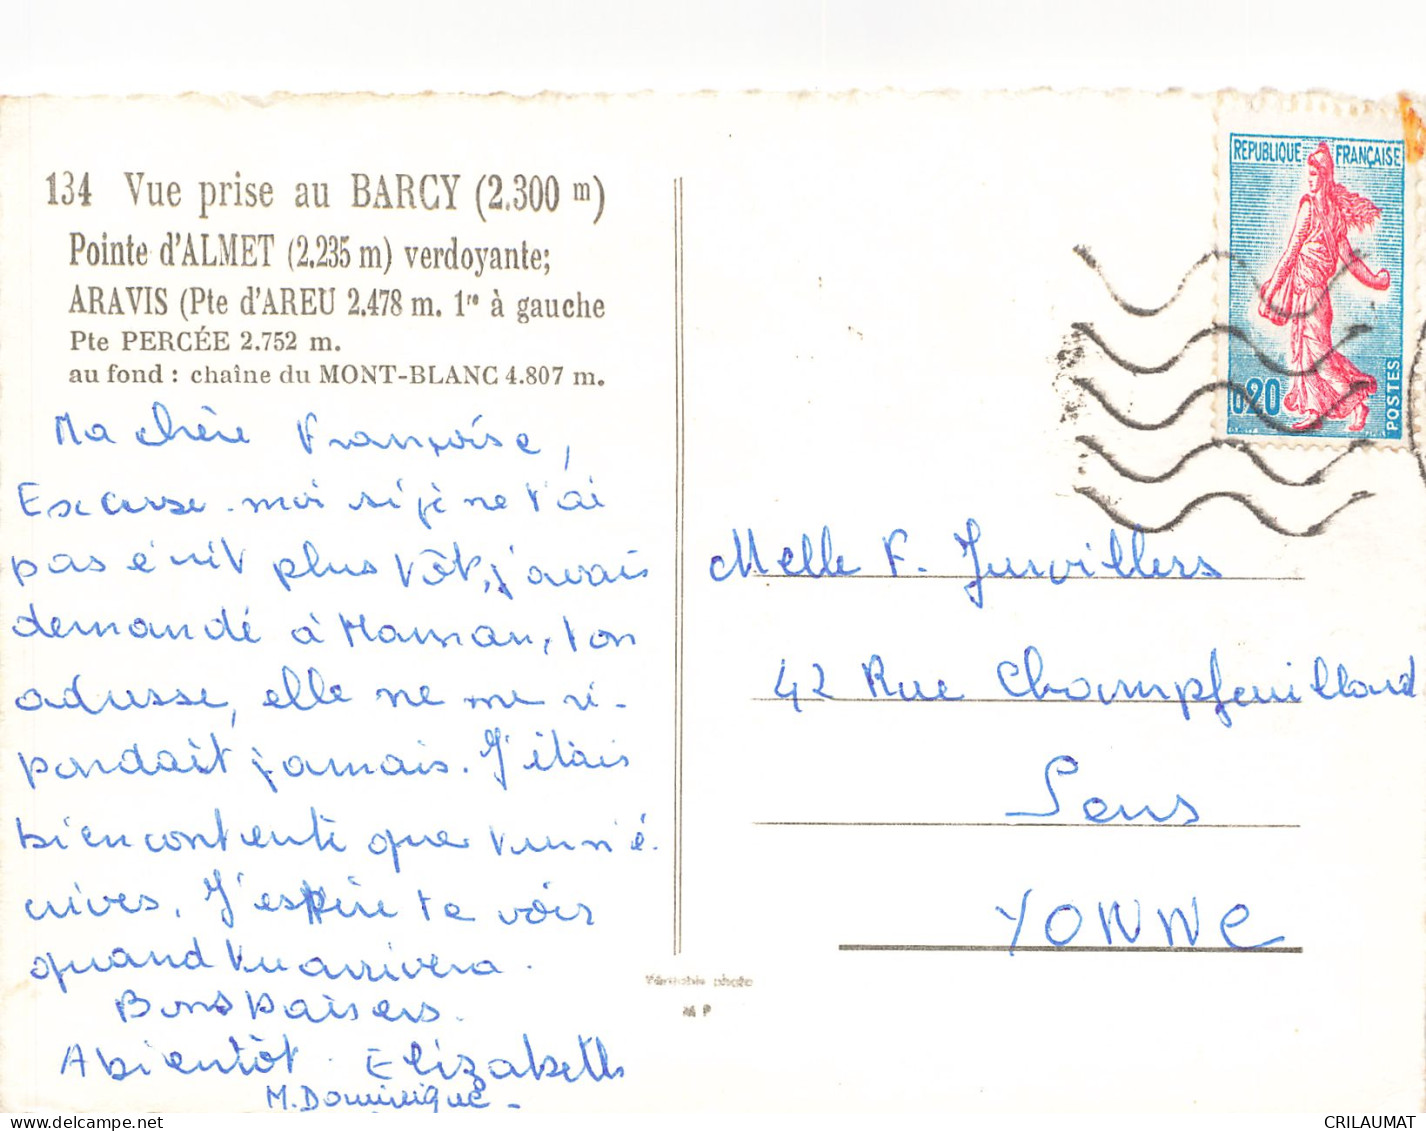 134 Vue prise au BARCY (2.300 m)
Pointe d'ALMET (2.235 m) verdoyante;
ARAVIS (Pte d'AREU 2.478 m. 1re à gauche
Pte PERCÉE 2.752 m.
au fond : chaîne du MONT-BLANC 4.807 m.
Ma chère Françoise,
Excuse-moi si je ne t'ai
pas écrit plus tôt, j'avais
demandé à Maman, ton
adresse, elle ne me ré-
pondait jamais. J'étais
bien contente que tu m'é-
crives. J'espère te voir
quand tu arrivera.
Bons baisers.
A bientôt. Elizabeth
M.Dominique -
REPUBLIQUE FRANÇAISE
0,20
POSTES
Melle F. Jurvillers
42 Rue Champfeuillard
Sens
YONNE
Véritable photo
M P
CRILAUMAT